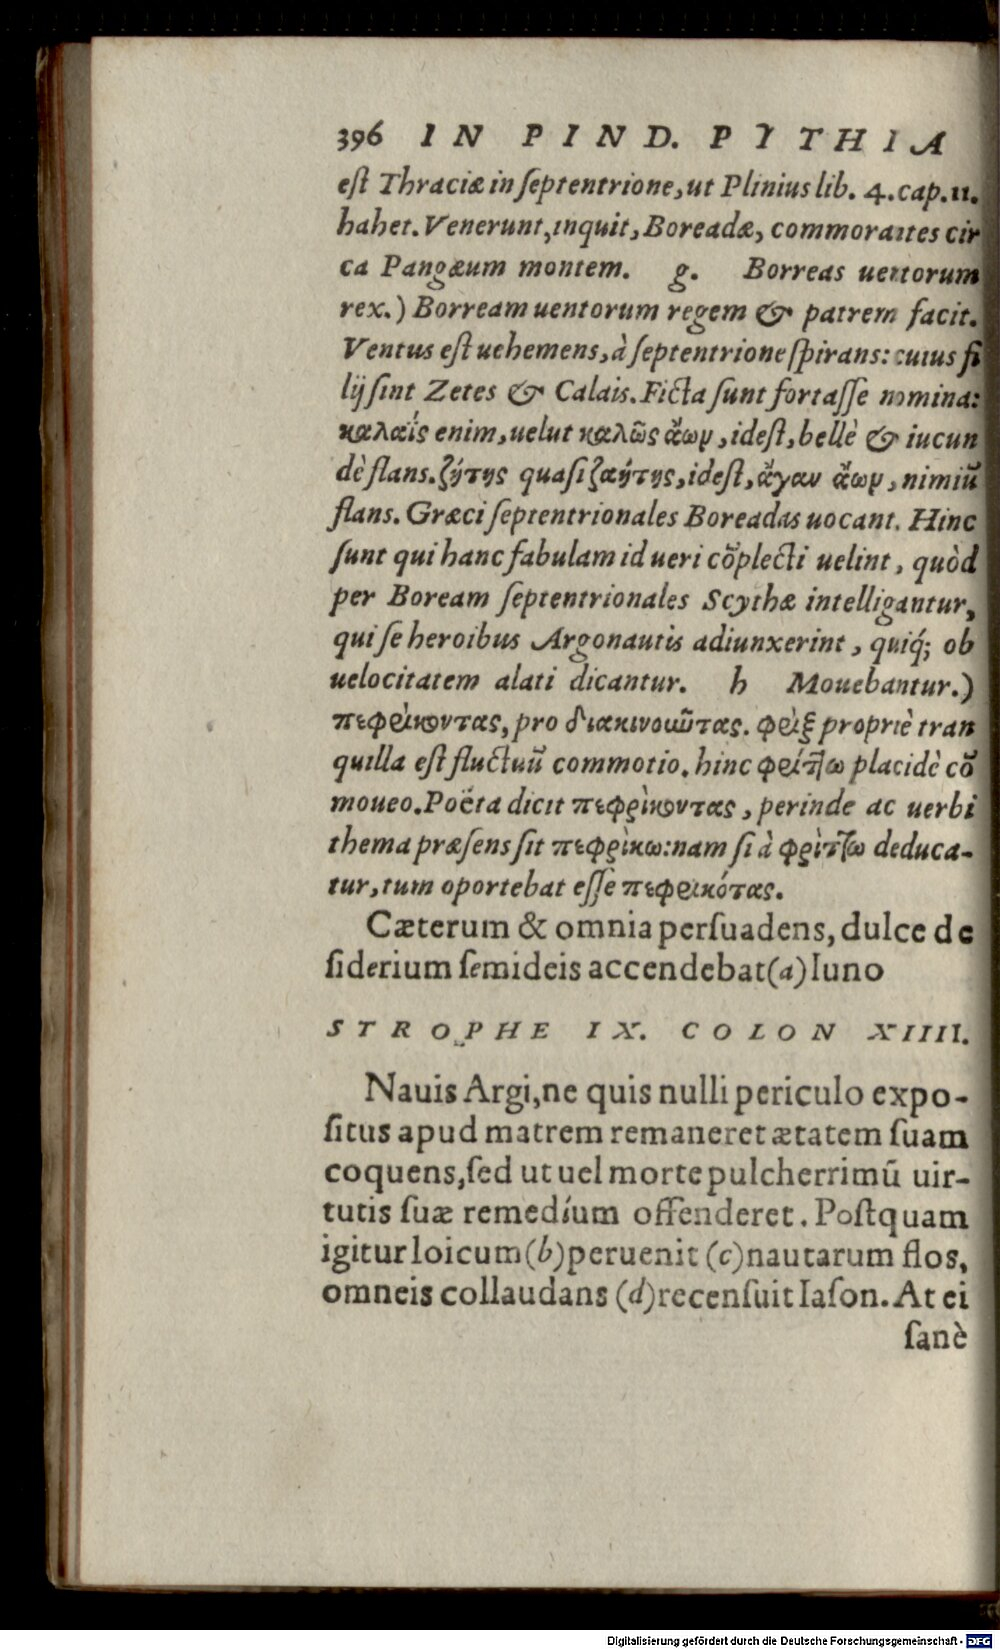 396 IN PIND. PYTHIA
est Thraciæ in septentrione, ut Plinius lib. 4. cap. 11.
habet. Venerunt, inquit, Boreadæ, commorantes cir
ca Pangæum montem. g. Borreas uentorum
rex.) Borream uentorum regem & patrem facit.
Ventus est uehemens, à septentrione spirans: cuius fi
lij sint Zetes & Calais. Ficta sunt fortasse nomina:
καλαΐς enim, uelut καλῶς ἄων, idest, bellè & iucun
dè flans. ζήτης quasi ζαήτης, idest, ἄγαν ἄων, nimiũ
flans. Græci septentrionales Boreadas uocant. Hinc
sunt qui hanc fabulam id ueri cõplecti uelint, quòd
per Boream septentrionales Scythæ intelligantur,
qui se heroibus Argonautis adiunxerint, quiq́; ob
uelocitatem alati dicantur. h Mouebantur.)
πεφρίκοντας, pro διακινοῦντας. φρὶξ propriè tran
quilla est fluctuũ commotio. hinc φρίττω placidè cõ
moueo. Poëta dicit πεφρίκοντας, perinde ac uerbi
thema præsens sit πεφρίκω: nam si à φρίττω deduca-
tur, tum oportebat essè πεφρικότας.
Cæterum & omnia persuadens, dulce de
siderium semideis accendebat (a) Iuno
STROPHE IX. COLON XIIII.
Nauis Argi, ne quis nulli periculo expo-
situs apud matrem remaneret ætatem suam
coquens, sed ut uel morte pulcherrimũ uir-
tutis suæ remedium offenderet. Postquam
igitur loicum (b) peruenit (c) nautarum flos,
omneis collaudans (d) recensuit Iason. At ei
sanè
Digitalisierung gefördert durch die Deutsche Forschungsgemeinschaft - DFG